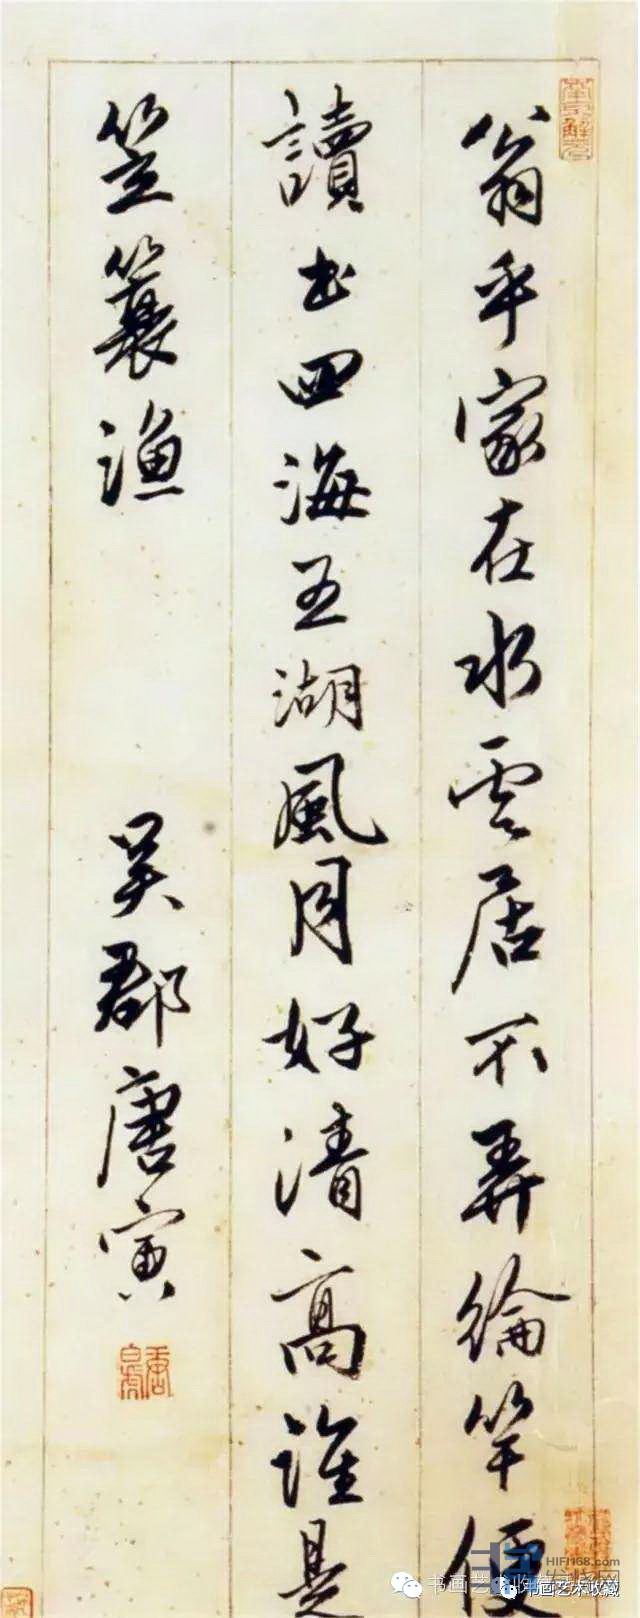 翁乎家在水雲居不弄綸竿便
讀书四海五湖風月好清高誰是
笠簑漁
吴郡唐寅
HIFI168.com
发烧网
书画艺术收藏